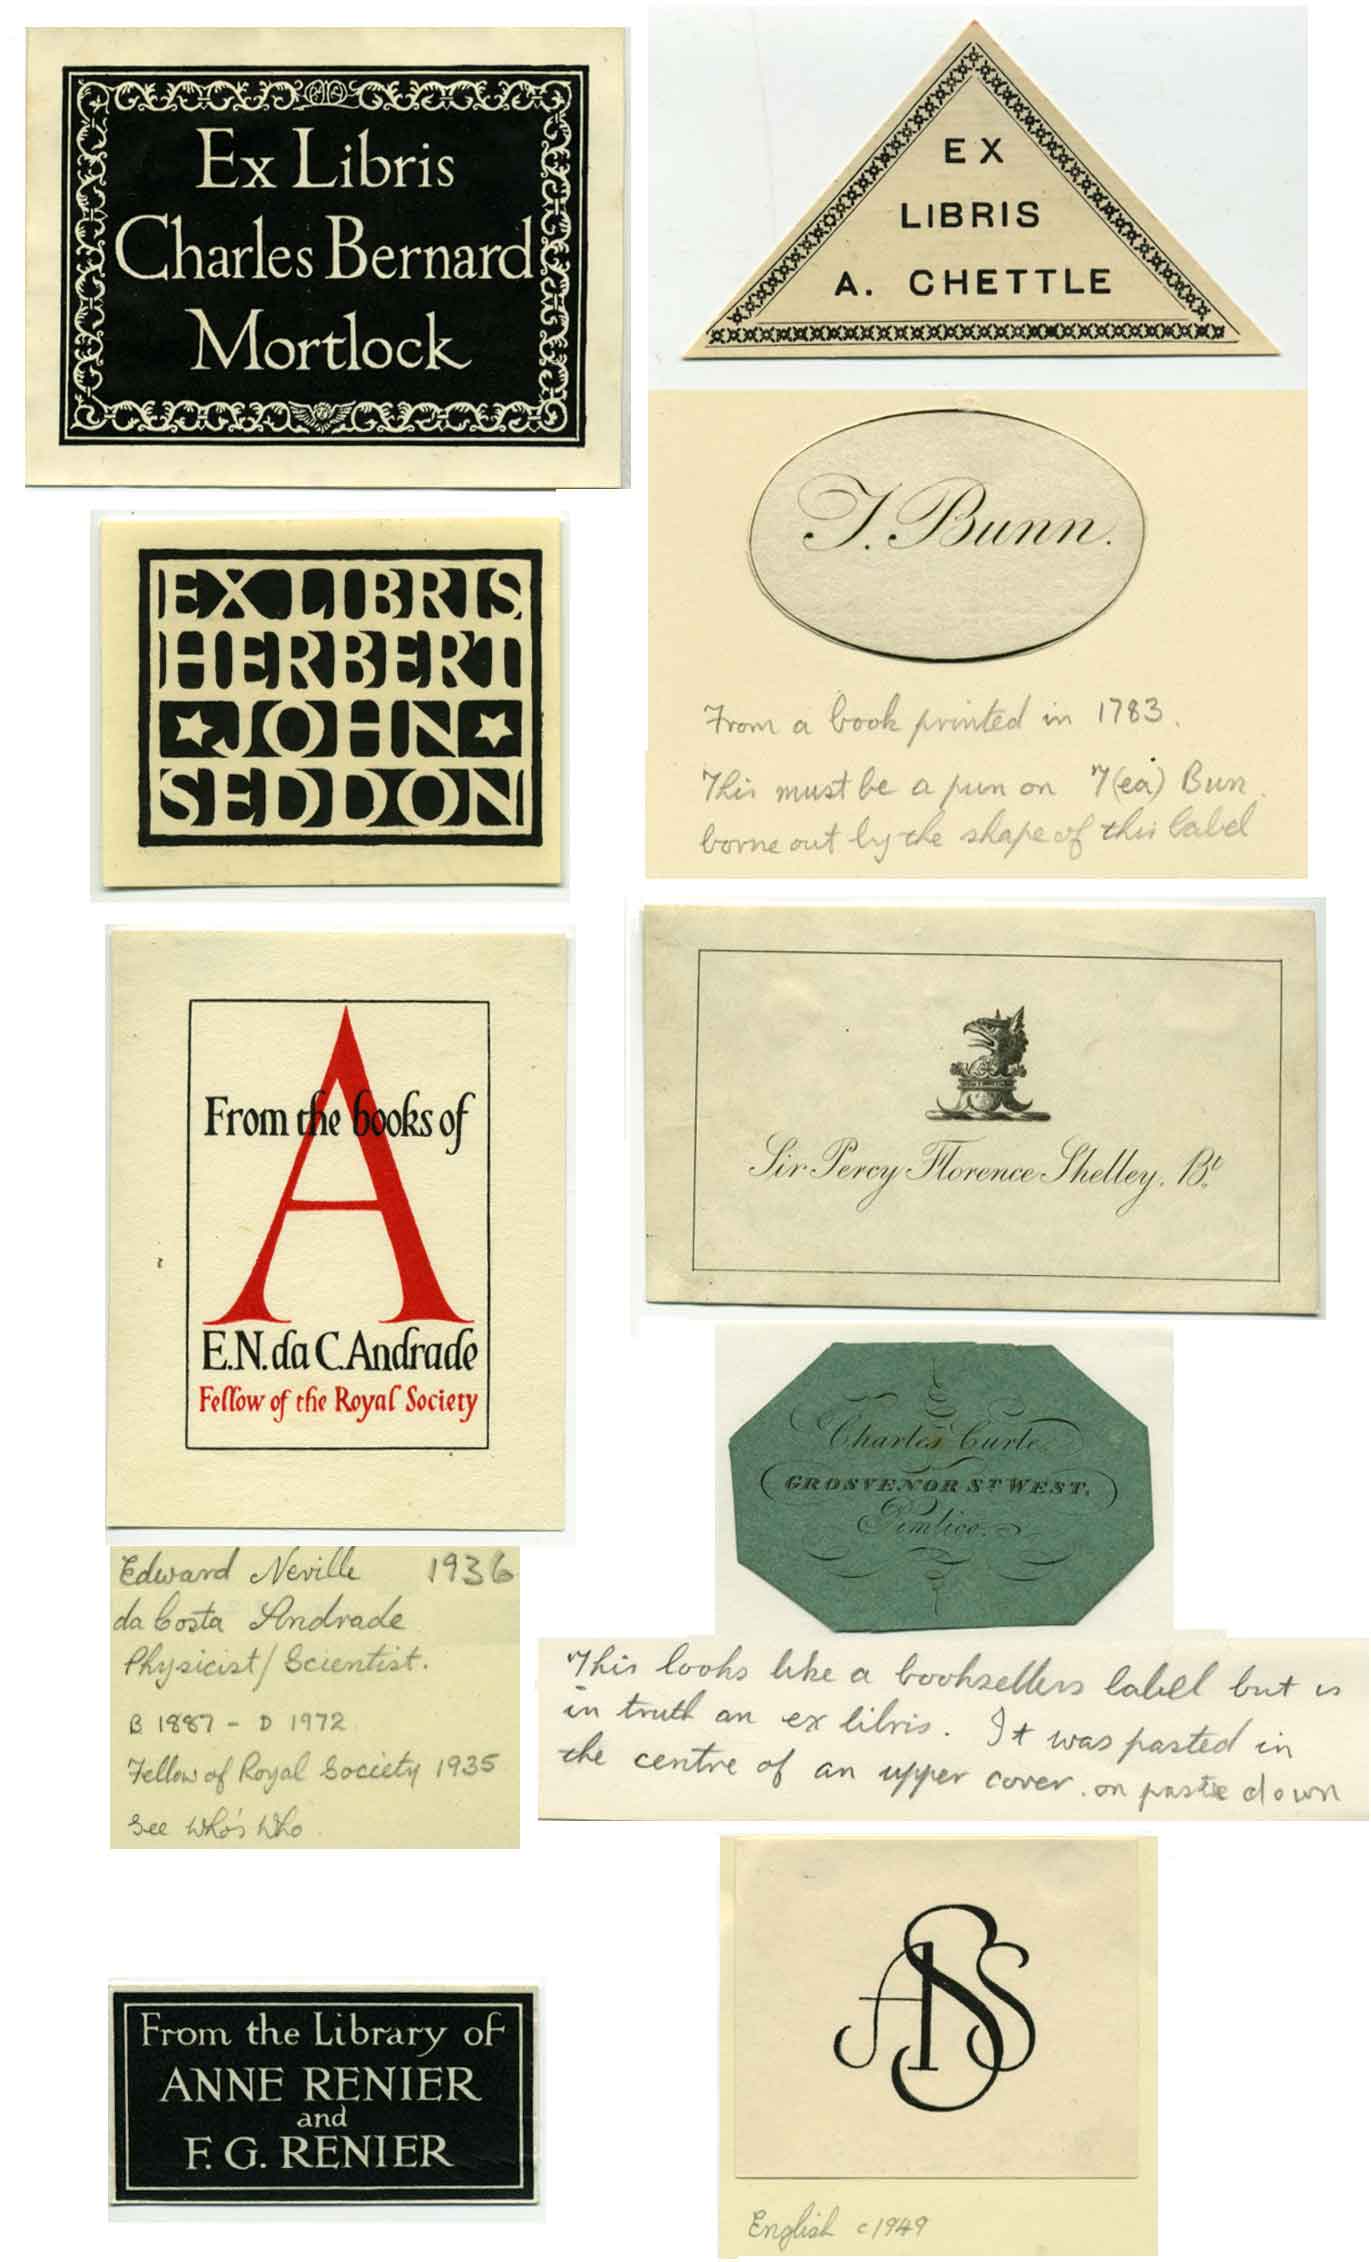 Ex Libris
Charles Bernard
Mortlock
EX
LIBRIS
A. CHETTLE
T. Bunn.
From a book printed in 1783.
This must be a pun on T(ea) Bun
borne out by the shape of this label
EX LIBRIS
HERBERT
JOHN
SEDDON
From the books of
A
E.N. da C. Andrade
Fellow of the Royal Society
Edward Neville 1936
da Costa Andrade
Physicist/Scientist.
B 1887 - D 1972
Fellow of Royal Society 1935
See Who's Who
Sir Percy Florence Shelley. Bt.
Charles Curle
GROSVENOR ST WEST.
Pimlico.
This looks like a booksellers label but is
in truth an ex libris. It was pasted in
the centre of an upper cover. on paste down
From the Library of
ANNE RENIER
and
F. G. RENIER
ASS
English c1949